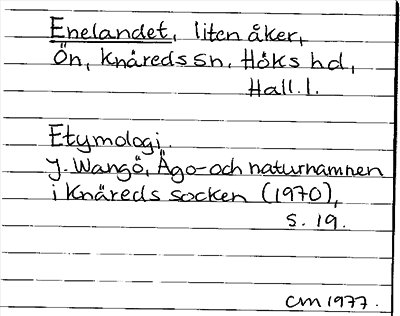 Enelandet, liten åker,
Ön, Knäreds sn. Höks hd,
Hall. l.
Etymologi.
J. Wangö, Ägo- och naturnamnen
i Knäreds socken (1970),
s. 19.
CM 1977.